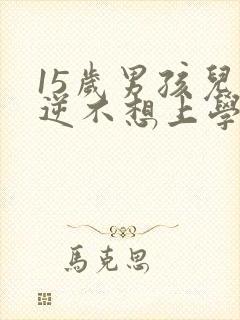 15歲男孩兒
逆不想上學
馬克思